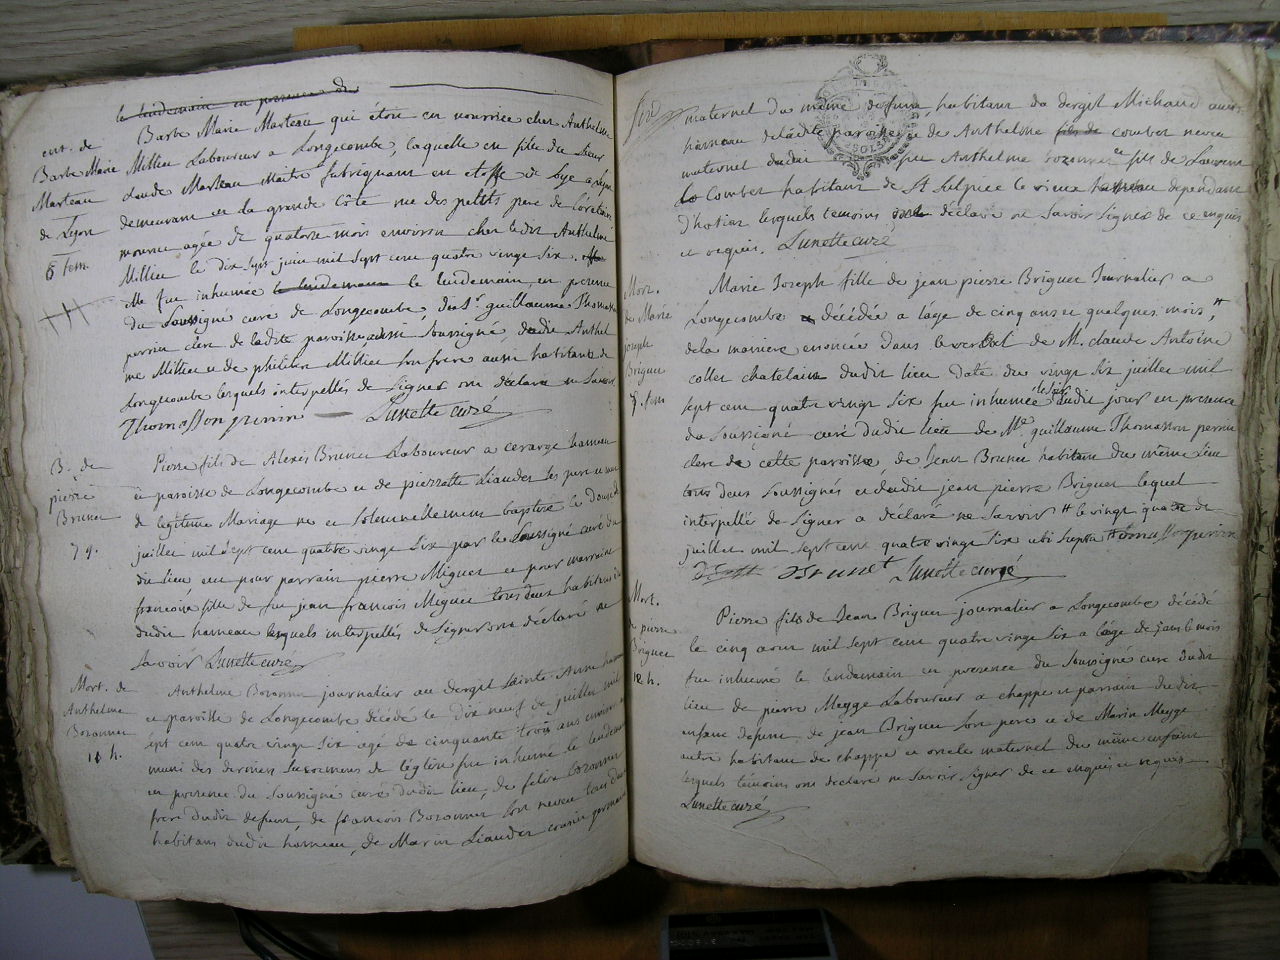 le lendemain en presence de
ent. de
Barbe Marie
Marteau
de Lyon
6 fem.
Barbe Marie Marteau qui étoit en nourrice chez Anthelme
Millieu Laboureur a Longecombe, laquelle est fille du Sieur
Claude Marteau Maitre fabriquant en etoffe de soye a Lyon
demeurant en la grande Côte rue des petits pere de
mourue agée de quatorze mois environ chez ledit Anthelme
Millieu le dix sept juin mil sept cent quatre vingt six.
elle fut inhumée le lendemain le lendemain, en presence
du Soussigné curé de Longecombe, de Sr. guillaume Thomasson
perrin clerc de ladite paroisse aussi Soussigné, dudit Anthel
me Millieu et de philibert Millieu son frere aussi habitants de
Longecombe lesquels interpellés de signer ont déclaré ne Savoir
Thomasson perrin Lunette curé
B. de
pierre
Brunet
7 g.
Pierre fils de Alexis Brunet Laboureur a cerarge hameau
et paroisse de Longecombe et de pierrette Liaudet ses pere et mere
de legitime Mariage né et solemnellement baptisé le douze
juillet mil sept cent quatre vingt six par le Soussigné curé du
dit lieu eut pour parrain pierre Miguet et pour marraine
francoise fille de feu jean francois Miguet tous deux habitans du
dudit hameau lesquels interpellés de signer ont déclaré ne
savoir Lunette curé
Mort. de
Anthelme
Bozonnet
11 h.
Anthelme Bozonnet journalier au dergit Sainte Anne hameau
et paroisse de Longecombe décédé le dix neuf de juillet mil
sept cent quatre vingt six agé de cinquante trois ans environ
muni des derniers Sacremens de l'église fut inhumé le lendemain
en presence du Soussigné curé dudit lieu, de felix bozonnet
frere dudit defunt, de francois Bozonnet son neveu tous deux
habitans dudit hameau, de Marin Liaudet cousin germain
maternel du même defunt, habitant du dergit Michaud autre
hameau de ladite paroisse et de Anthelme fils de combet neveu
maternel dudit feu Anthelme bozonnet et fils de Laurent
Combet habitant de St Sulpice le vieux hameau dependant
d'hotias lesquels temoins ont déclaré ne Savoir signer de ce enquis
et requis. Lunette curé
Mort.
de Marie
Joseph
Briguet
7. fem
Marie Joseph fille de jean pierre Briguet Journalier a
Longecombe décédée a l'age de cinq ans et quelques mois,
de la maniere enoncée dans le verbal de M. claude Antoine
collet chatelain dudit lieu daté du vingt six juillet mil
sept cent quatre vingt six fut inhumée le soir dudit jour en presence
du Soussigné curé dudit lieu de Me. guillaume Thomasson perrin
clerc de cette paroisse, de Brunet habitant du même Lieu
tous deux Soussignés et dudit jean pierre Briguet lequel
interpellé de signer a déclaré ne savoir le vingt quatre de
juillet mil sept cent quatre vingt six ubi supra Thomasson perrin
Brunet Lunette curé
Mort.
de pierre
Briguet
12 h.
Pierre fils de Jean Briguet journalier a Longecombe décédé
le cinq aout mil sept cent quatre vingt six a l'age de
fut inhumé le lendemain en presence du Soussigné curé dudit
lieu de pierre Meygé Laboureur a chappe et parrain dudit
enfant defunt de jean Briguet son pere et de Marin Meygé
autre habitant de chappe et oncle maternel du même enfant
lesquels témoins ont declaré ne savoir signer de ce enquis et requis
Lunette curé